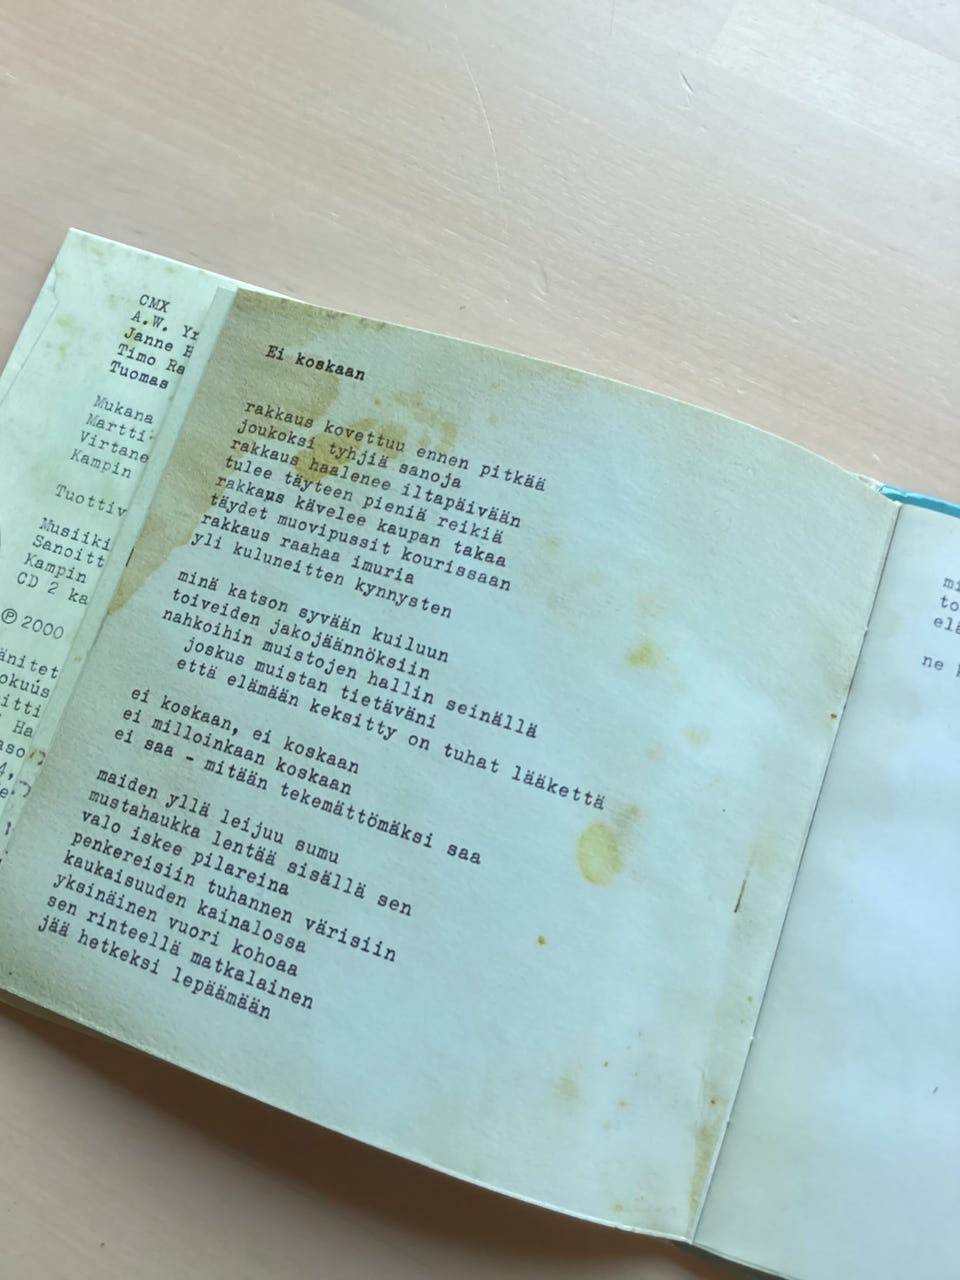 CMX
A.W.
Janne
Timo
Tuomas
Mukana
Martti
Virtane
Kampin
Tuottiv
Musiiki
Sanoitt
Kampin
CD 2 ka
℗ 2000
Ei koskaan
rakkaus kovettuu ennen pitkää
joukoksi tyhjiä sanoja
rakkaus haalenee iltapäivään
tulee täyteen pieniä reikiä
rakkaus kävelee kaupan takaa
täydet muovipussit kourissaan
rakkaus raahaa imuria
yli kuluneitten kynnysten
minä katson syvään kuiluun
toiveiden jakojäännöksiin
nahkoihin muistojen hallin seinällä
joskus muistan tietäväni
että elämään keksitty on tuhat lääkettä
ei koskaan, ei koskaan
ei milloinkaan koskaan
ei saa - mitään tekemättömäksi saa
maiden yllä leijuu sumu
mustahaukka lentää sisällä sen
valo iskee pilareina
penkereisiin tuhannen värisiin
kaukaisuuden kainalossa
yksinäinen vuori kohoaa
sen rinteellä matkalainen
jää hetkeksi lepäämään
mi
to
elä
ne